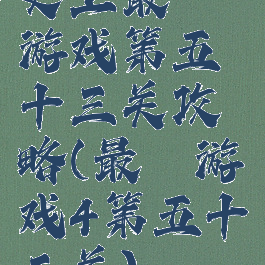 史上最
游戏第五
十三关攻
略(最 游
戏4第五十
三关)